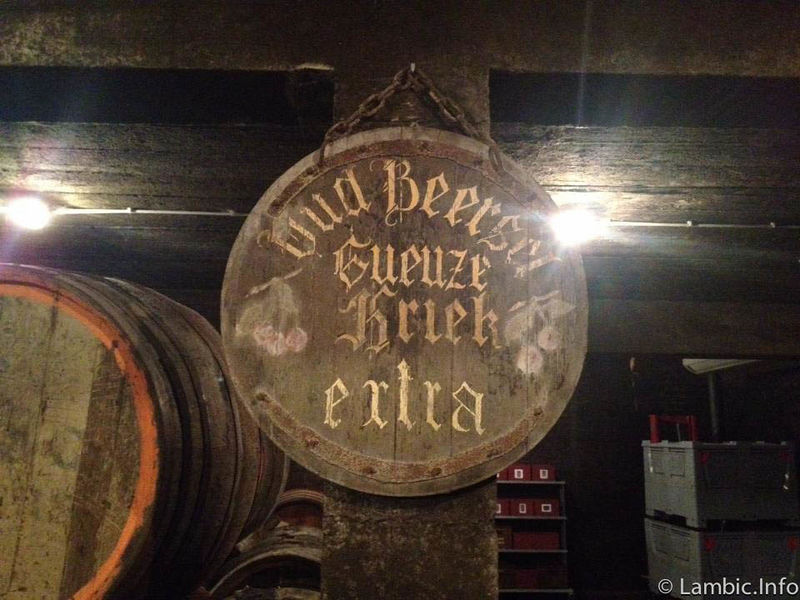 Oud Beersel
Gueuze
Kriek
extra
© Lambic.Info